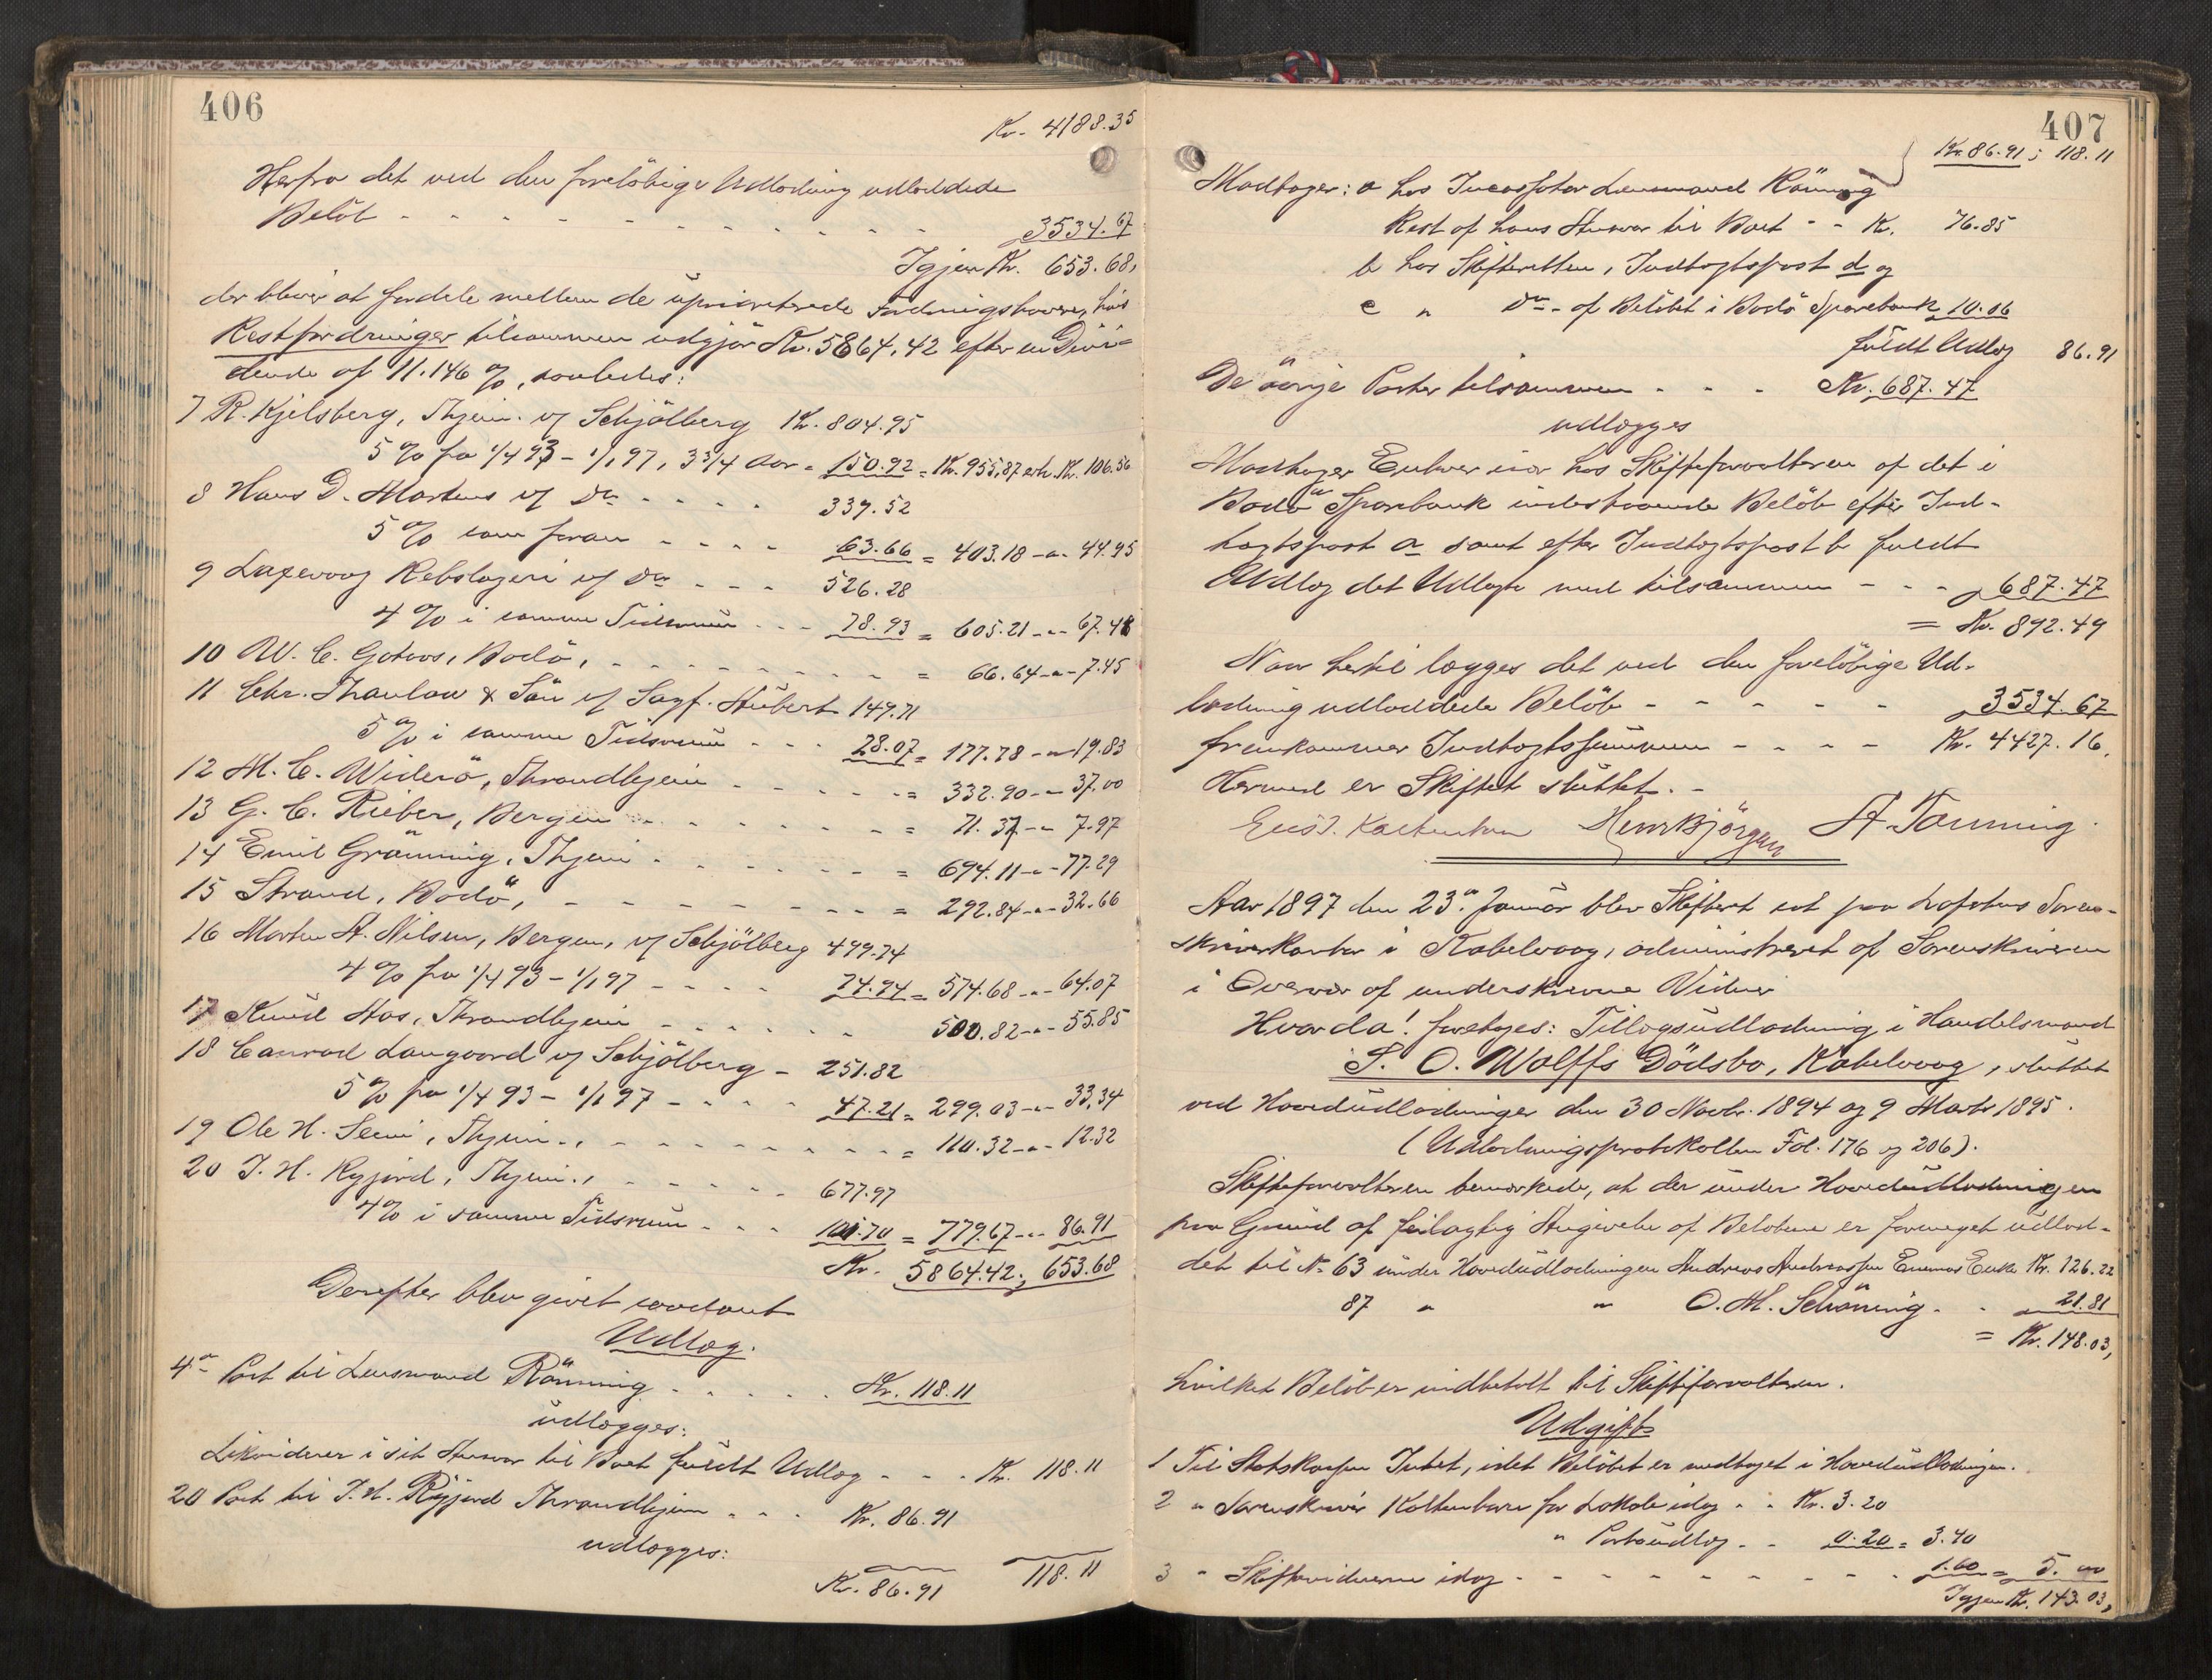 406
Kr. 4188.35
Herfra det ved den foreløbige Udlodning udloddede
Beløb - - - - - - - - - - 3534.67
Igjen Kr. 653.68,
der bliver at fordele mellem de upriariterede Fordringshavere, hvis
Restfordringer tilsammen udgjør Kr. 5864.42 efter en Divi-
dende af 11.146 %, saaledes:
7 R. Kjelsberg, Thjem. v/ Schjölberg Kr. 804.95
5 % fra 1/4 93 - 1/1 97, 3 3/4 Aar = 150.92 = Kr. 955,87 erh. Kr. 106.56
8 Hans D. Martens v/ Do - - - - 339.52
5 % som foran - - - - 63.66 = 403.18 -"- 44.95
9 Laxevaag Rebslageri v/ Do - - - 526.28
4 % i samme Tidsrum - - - 78.93 = 605.21 -"- 67.48
10 W. C. Gotaas, Bodö, - - - - - - - - = 66.64 -"- 7.45
11 Chr. Thaulow & Sön v/ Sagf. Hübert 149.71
5 % i samme Tidsrum - - - 28.07 = 177.78 -"- 19.83
12 M. C. Widerö, Throndhjem - - - - - = 332.90 -"- 37.00
13 G. C. Rieber, Bergen - - - - - - - = 71.37 -"- 7.97
14 Emil Grönning, Thjem - - - - - - = 694.11 -"- 77.29
15 Strand, Bodö, - - - - - - - - - = 292.84 -"- 32.66
16 Morten A. Nilsen, Bergen, v/ Schjölberg 499.74
4 % fra 1/4 93 - 1/1 97 - - - - 74.94 = 574.68 -"- 64.07
17 Knud Aas, Throndhjem - - - - - - 500.82 -"- 55.85
18 Conrad Langaard v/ Schjölberg - 251.82
5 % fra 1/4 93 - 1/1 97 - - - - 47.21 = 299.03 -"- 33.34
19 Ole H. Seem, Thjem., - - - - - - - - = 110.32 -"- 12.32
20 J. H. Ryjord, Thjem., - - - - - - 677.97
4 % i samme Tidsrum - - - 101.70 = 779.67 -"- 86.91
Kr. 5864.42; 653.68
Derefter blev givet saadant
Udlæg.
4a Post til Lensmand Rönning - - - - - Kr. 118.11
udlægges:
Likviderer i sit Ansvar til Boet fuldt Udlæg - - - Kr. 118.11
20 Post til J. H. Ryjord Throndhjem - - - Kr. 86.91
udlægges:
Kr. 86.91 118.11
407
Kr. 86.91; 118.11
Modtager: a hos Incassator Lensmand Rönning
Rest af hans Ansvar til Boet - - Kr. 76.85
b hos Skifteretten, Indtægtspost d og
e " Do - af Beløbet i Bodö Sparebank 10.06
fuldt Udlæg 86.91
De övrige Poster tilsammen - - - Kr. 687.47
udlægges
Modtager Enhver især hos Skifteforvalteren af det i
Bodö Sparebank indestaaende Beløb efter Ind-
tægtspost a samt efter Indtægtspost b fuldt
Udlæg det Udlagte med tilsammen - - - 687.47
= Kr. 892.49
Naar hertil lægges det ved den foreløbige Ud-
lodning udloddede Beløb - - - - - 3534.67
fremkommer Indtægtssummen - - - - Kr. 4427.16.
Hermed er Skiftet sluttet. -
Kaltenborn Henr Björgan A. Tanning
Aar 1897 den 23de Januar blev Skifteret sat paa Lofotens Soren-
skriverkontor i Kabelvaag, administreret af Sorenskriveren
i Overvær af underskrevne Vidner
Hvorda! foretages: Tillægsudlodning i Handelsmand
S. O. Wolffs Dödsbo, Kabelvaag, sluttet
ved Hovedudlodninger den 30 Novbr. 1894 og 9 Marts 1895.
(Udlodningsprotokollen Fol. 176 og 206).
Skifteforvalteren bemærkede, at der under Hovedudlodningen
paa Grund af feilagtig Angivelse af Beløbene er formeget udlod-
det til No 63 under Hovedudlodningen Andreas Andreassen Enke Kr. 126.22
87 " " O. M. Schöning - - 21.81
= Kr. 148.03,
hvilket Beløb er indbetalt til Skifteforvalteren.
Udgift
1 Til Statskassen Intet, idet Beløbet er medtaget i Hovedudlodningen.
2 " Sorenskriver Kaltenborn for Lokale idag - - Kr. 3.20
" Portoudlæg - - 0.20 = 3.40
3 " Skiftevidnerne idag - - - - - - - - - 1.60 = 5.00
Igjen Kr. 143.03,